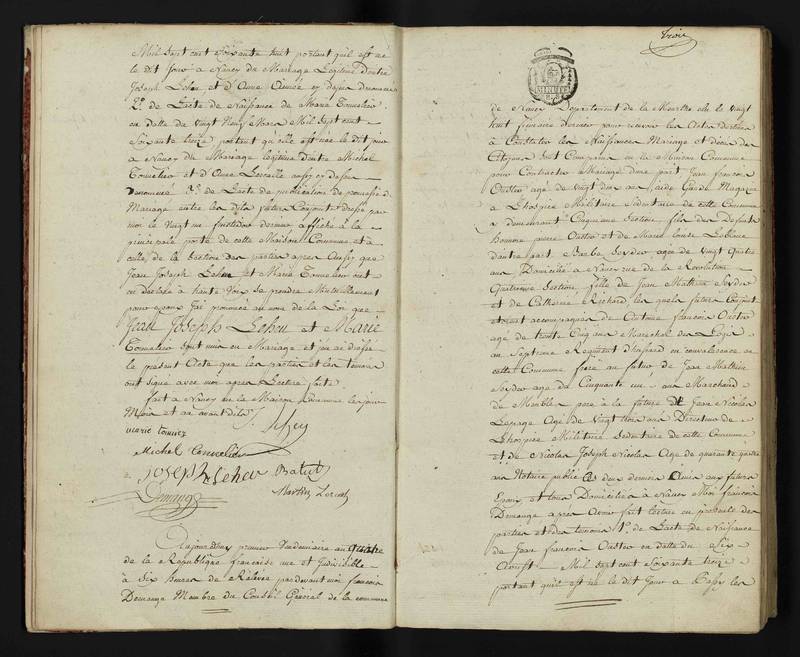 Mil Sept cent Soixante huit portant quil est né
le dit jour a Nancy du Mariage Legitime d'entre
Joseph Leheu et d'Anne
2e de Lacte de Naissance de Marie Tonnelier
en datte du vingt Neuf Mars Mil Sept cent
Soixante treize portant qu'elle est née le dit jour
a Nancy du Mariage legitime d'entre Michel
Tonnelier et d'Anne
denommé 3e de Lacte de publication de promesse de
Mariage entre les dits futurs Conjoints dressé par
moi le vingt dernier affiché à la
principale porte de cette Maison Commune et à
celle de la Section des parties apres Aussy que
Jean Joseph Leheu et Marie Tonnelier ont
eu declaré à haute voix se prendre Mutuellement
pour epoux J'ai prononcé au nom de la Loi que
Jean Joseph Leheu et Marie
Tonnelier sont unis en Mariage et j'en ai dressé
le present Acte que les parties et les temoins
ont signé avec moi apres Lecture faite
fait a Nancy en la Maison Commune les jour
Mois et an avant dits
marie tonnelier
Michel Tonnelier
Joseph Leheu
Demange
Aujourd'huy premier Vendemiaire an quatre
de la Republique francoise une et Indivisible
à Six heures de Relevé pardevant moi francois
Demange Membre du Conseil General de la commune
trois
de Nancy Departement de la Meurthe elu le vingt
huit frimaire dernier pour recevoir les Actes destinés
à Constater les Naissances Mariage et décès des
Citoyens Sont Comparus en la Maison Commune
pour Contracter Mariage d'une part Jean francois
agé de vingt deux ans, aide Garde Magazin
a Lhospice Militaire Sedentaire de cette Commune
y demeurant Cinquieme Section fils des Defunts
pierre et de Marie Louise Leblanc
dautre part Barbe agée de vingt Quatre
ans Domiciliée a Nancy rue de la Revolution
Quatrieme Section fille de Jean Mathieu
et de Catherine Richard les quels futurs Conjoints
etoient accompagnés de Antoine francois
agé de trente Cinq ans Marechal des Logis
au Septieme Regiment d'hussard en convalescence en
cette Commune frere au futur de Jean Mathieu
agé de Cinquante un ans Marchand
de Meubles pere à la future de Jean Nicolas
Lepage Agé de Vingt trois ans Directeur de
Lhospice Militaire Sedentaire de cette Commune
et de Nicolas Joseph Nicolas Agé de quarante quatre
ans Notaire public les deux derniers Amis aux futurs
Epoux et tous Domiciliés à Nancy Moi francois
Demange apres Avoir fait lecture en presence des
parties et des temoins 1° de Lacte de Naissance
de Jean francois en datte du Six
Aoust Mil Sept cent Soixante treize
portant qu'il est né le dit Jour a Passy les